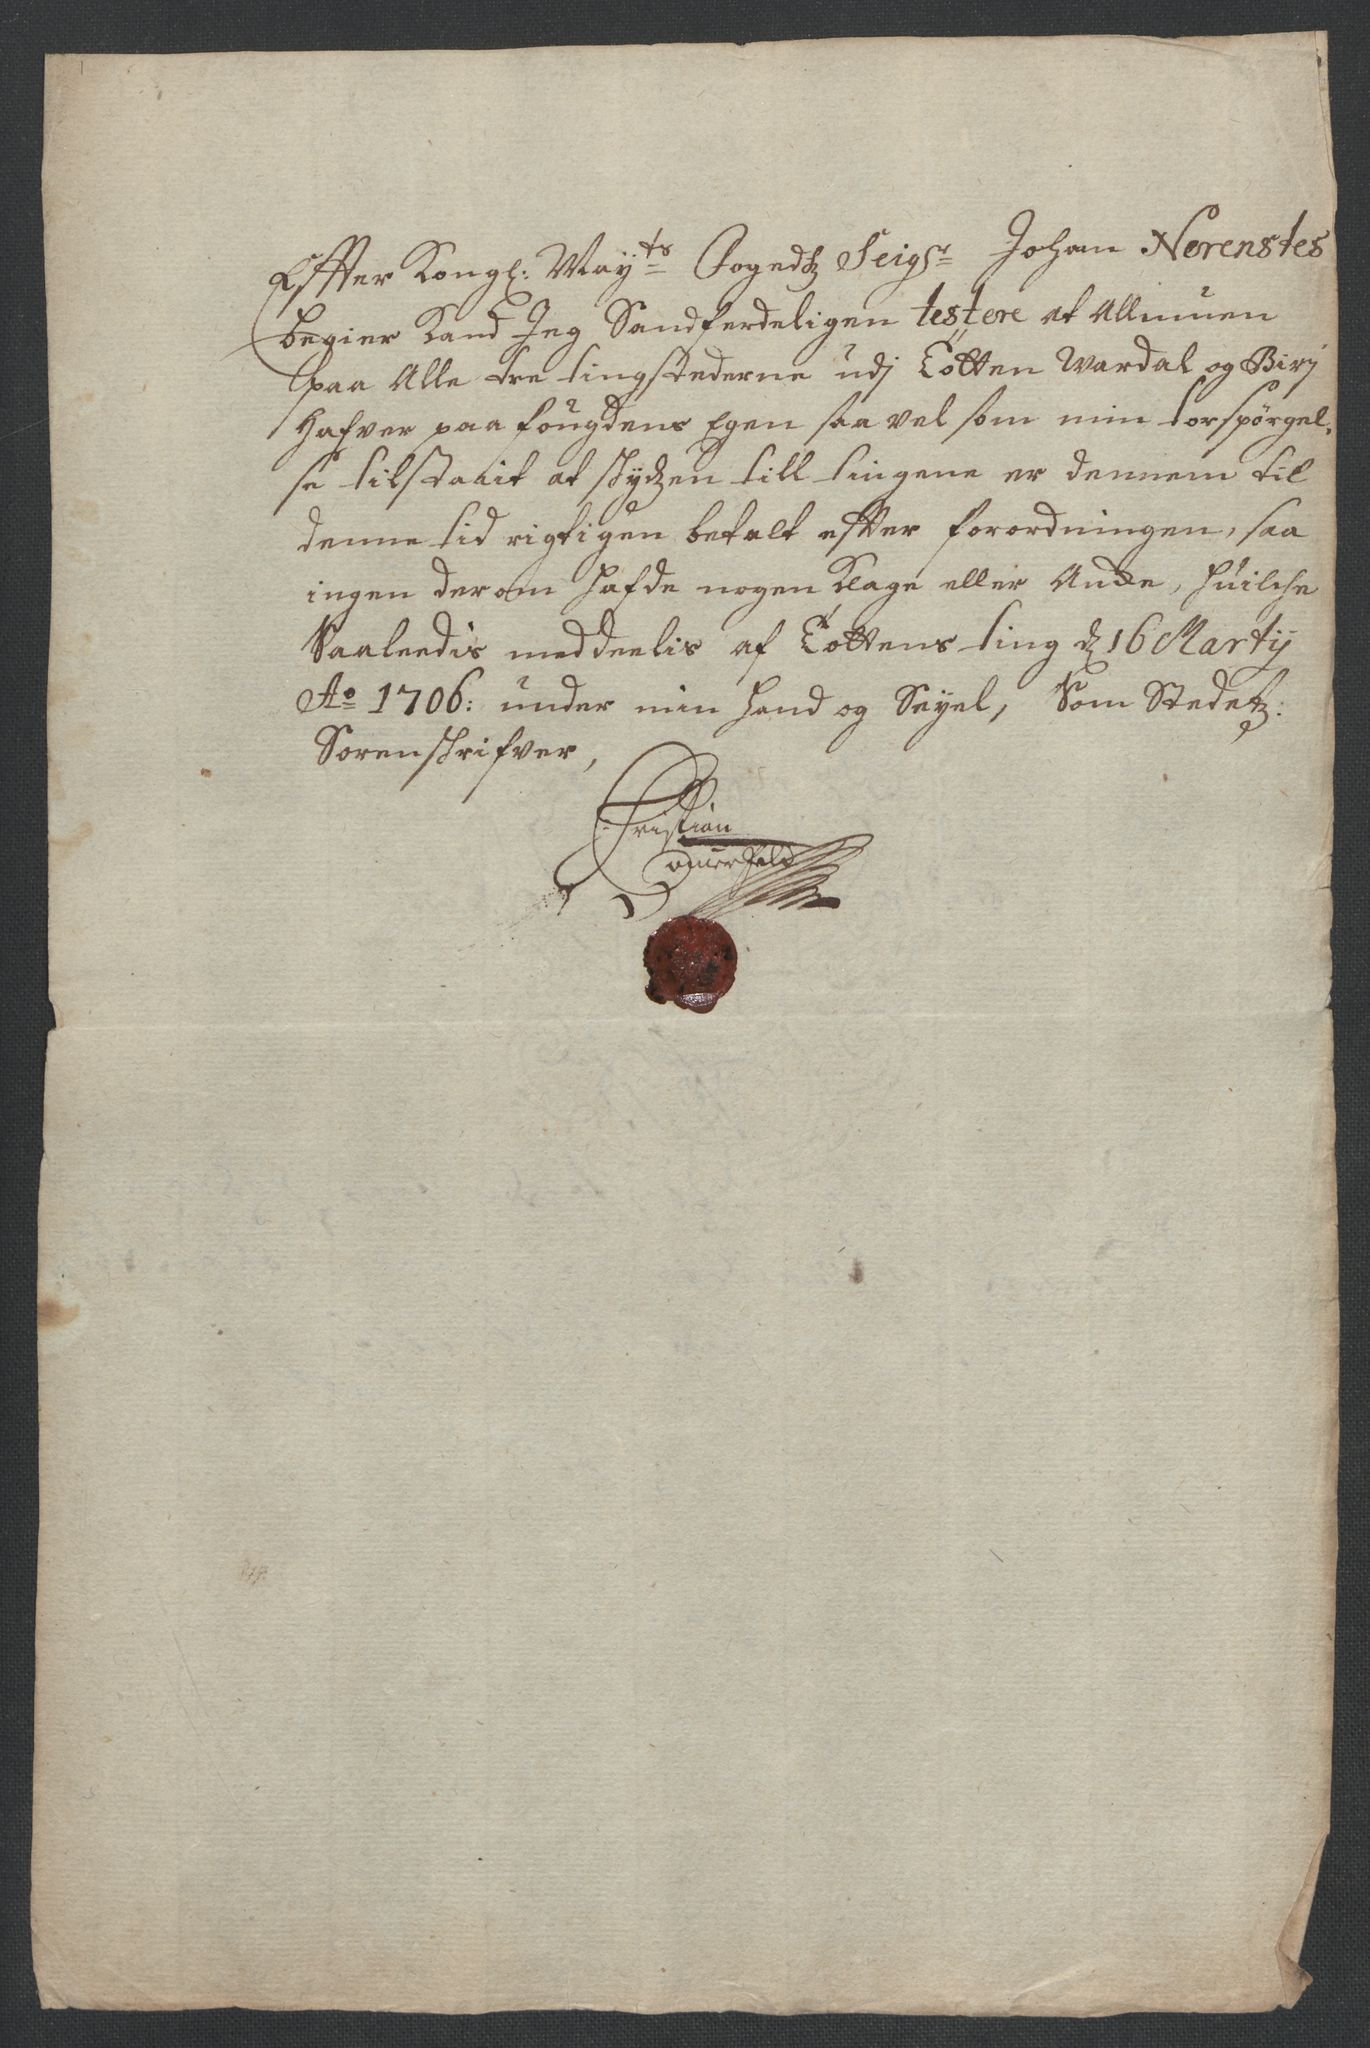 Effter Kongl: May<sup>ts</sup> Fogedtz Seig<sup>r</sup> Johan Nørenstes
begier Kand Jeg Sandferdeligen testere at Allmuen
paa Alle tre tingstederne udj Totten Wardal og Birj
Hafver paa fougdens Egen saa vel som min torspørgel-
se tilstaait at skydzen till tingene er dennem til
denne tid rigtigen betalt effter forordningen, saa
ingen der om hafde nogen Klage eller Anke, huilche
Saaleedis meddeelis af Tottens ting d 16 Martij
Ao 1706: under min Hand og Seyel, Som Stedetz:
Sorenschrifver,
Christian
Somerfeld